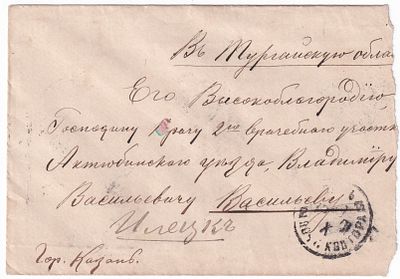 Въ Тургайскую обла
Его Высокоблагородію
Господину Врачу 2го врачебнаго участк
Актюбинскаго уѣзда, Владиміру
Васильевичу Васильеву
Илецкъ
Гор. Казань.
КОНТОРА